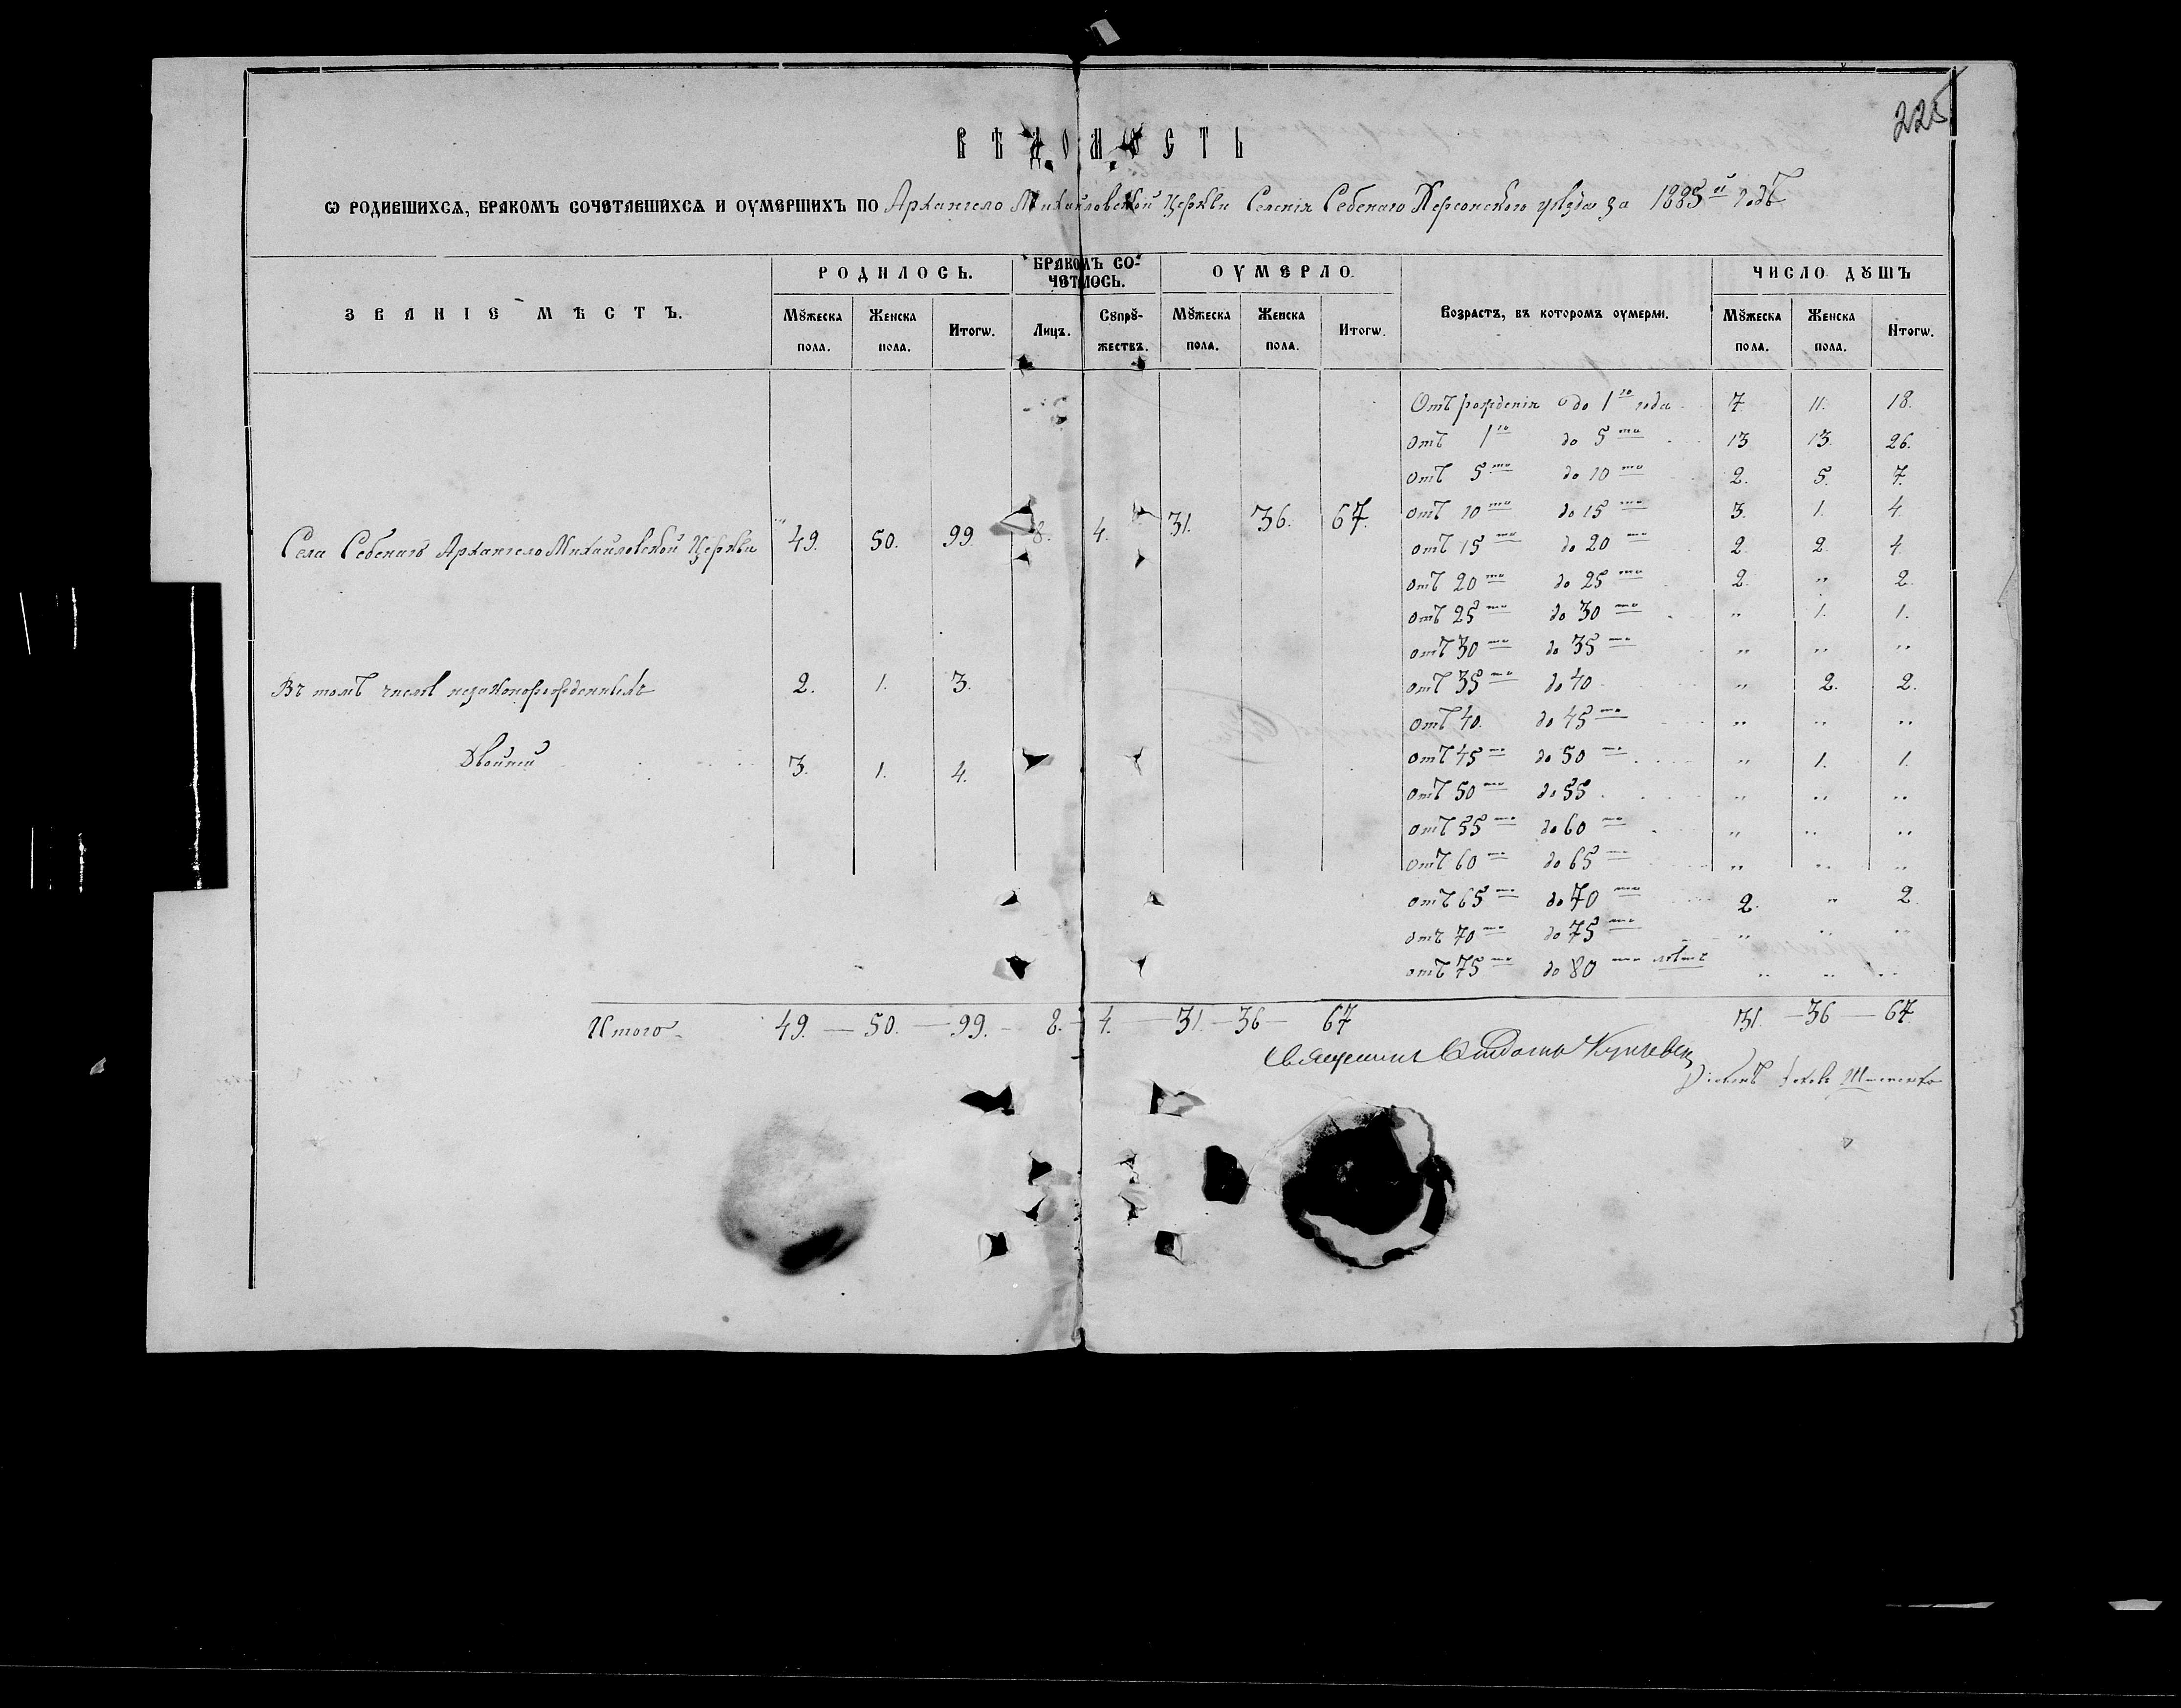 225
ВѢДОМОСТЬ
Ѡ РОДИВШИХСѦ, БРАКОМЪ СОЧЕТАВШИХСѦ И ОУМЕРШИХЪ ПО Архангело Михайловской Церкви Селенія Себенаго Херсонскаго уѣзда за 1885й годъ
ЗВАНІЕ МѢСТЪ. РОДИЛОСЬ. БРАКОМЪ СО- ОУМЕРЛО. Возрастъ, въ которомъ оумерли. ЧИСЛО ДꙊШЪ
ЧЕТАЛОСЬ.
МꙊжеска Женска Итогѡ. Лицъ. СꙊпрꙊ- МꙊжеска Женска Итогѡ. МꙊжеска Женска Итогѡ.
пола. пола. жествъ. пола. пола. пола. пола.
Отъ рожденія до 1го года 7. 11. 18.
отъ 1го до 5ти 13 13. 26.
отъ 5ти до 10ти 2. 5. 7.
отъ 10ти до 15ти 3. 1. 4.
Села Себенаго Архангело Михайловской Церкви 49. 50. 99 8. 4. 31. 36. 67.
отъ 15ти до 20ти 2. 2. 4.
отъ 20ти до 25ти 2. „ 2.
отъ 25ти до 30ти „ 1. 1.
отъ 30ти до 35ти „ „ „
Въ томъ числѣ незаконорожденныхъ 2. 1. 3. отъ 35ти до 40 „ 2. 2.
отъ 40. до 45ти „ „ „
Двойней 3. 1. 4. отъ 45ти до 50ти „ 1. 1.
отъ 50ти до 55 „ „ „
отъ 55ти до 60ти „ „ „
отъ 60ти до 65ти „ „ „
отъ 65ти до 70ти 2. „ 2.
отъ 70ти до 75ти „ „ „
отъ 75ти до 80ти лѣтъ „ „ „
Итого 49. — 50. — 99. — 8. — 4. — 31. — 36 — 67 31. — 36 — 67.
Священникъ
Діаконъ